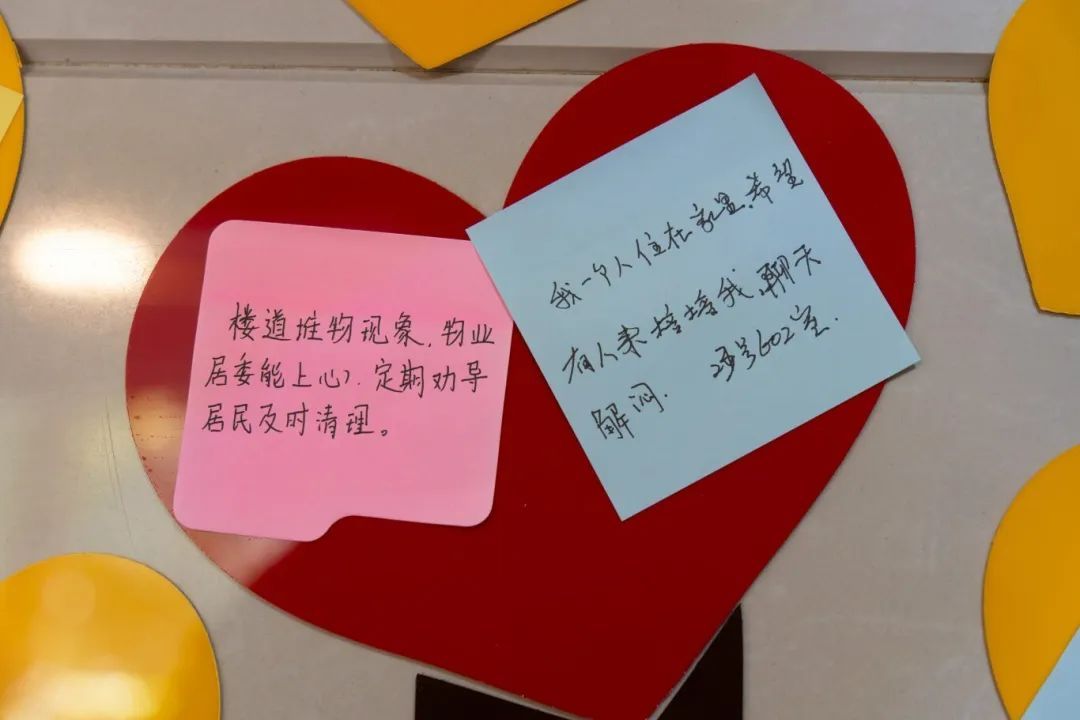 楼道堆物现象,物业
居委能上心,定期劝导
居民及时清理。
我一个人住在家里,希望
有人来陪陪我,聊天
解闷. 号602室.